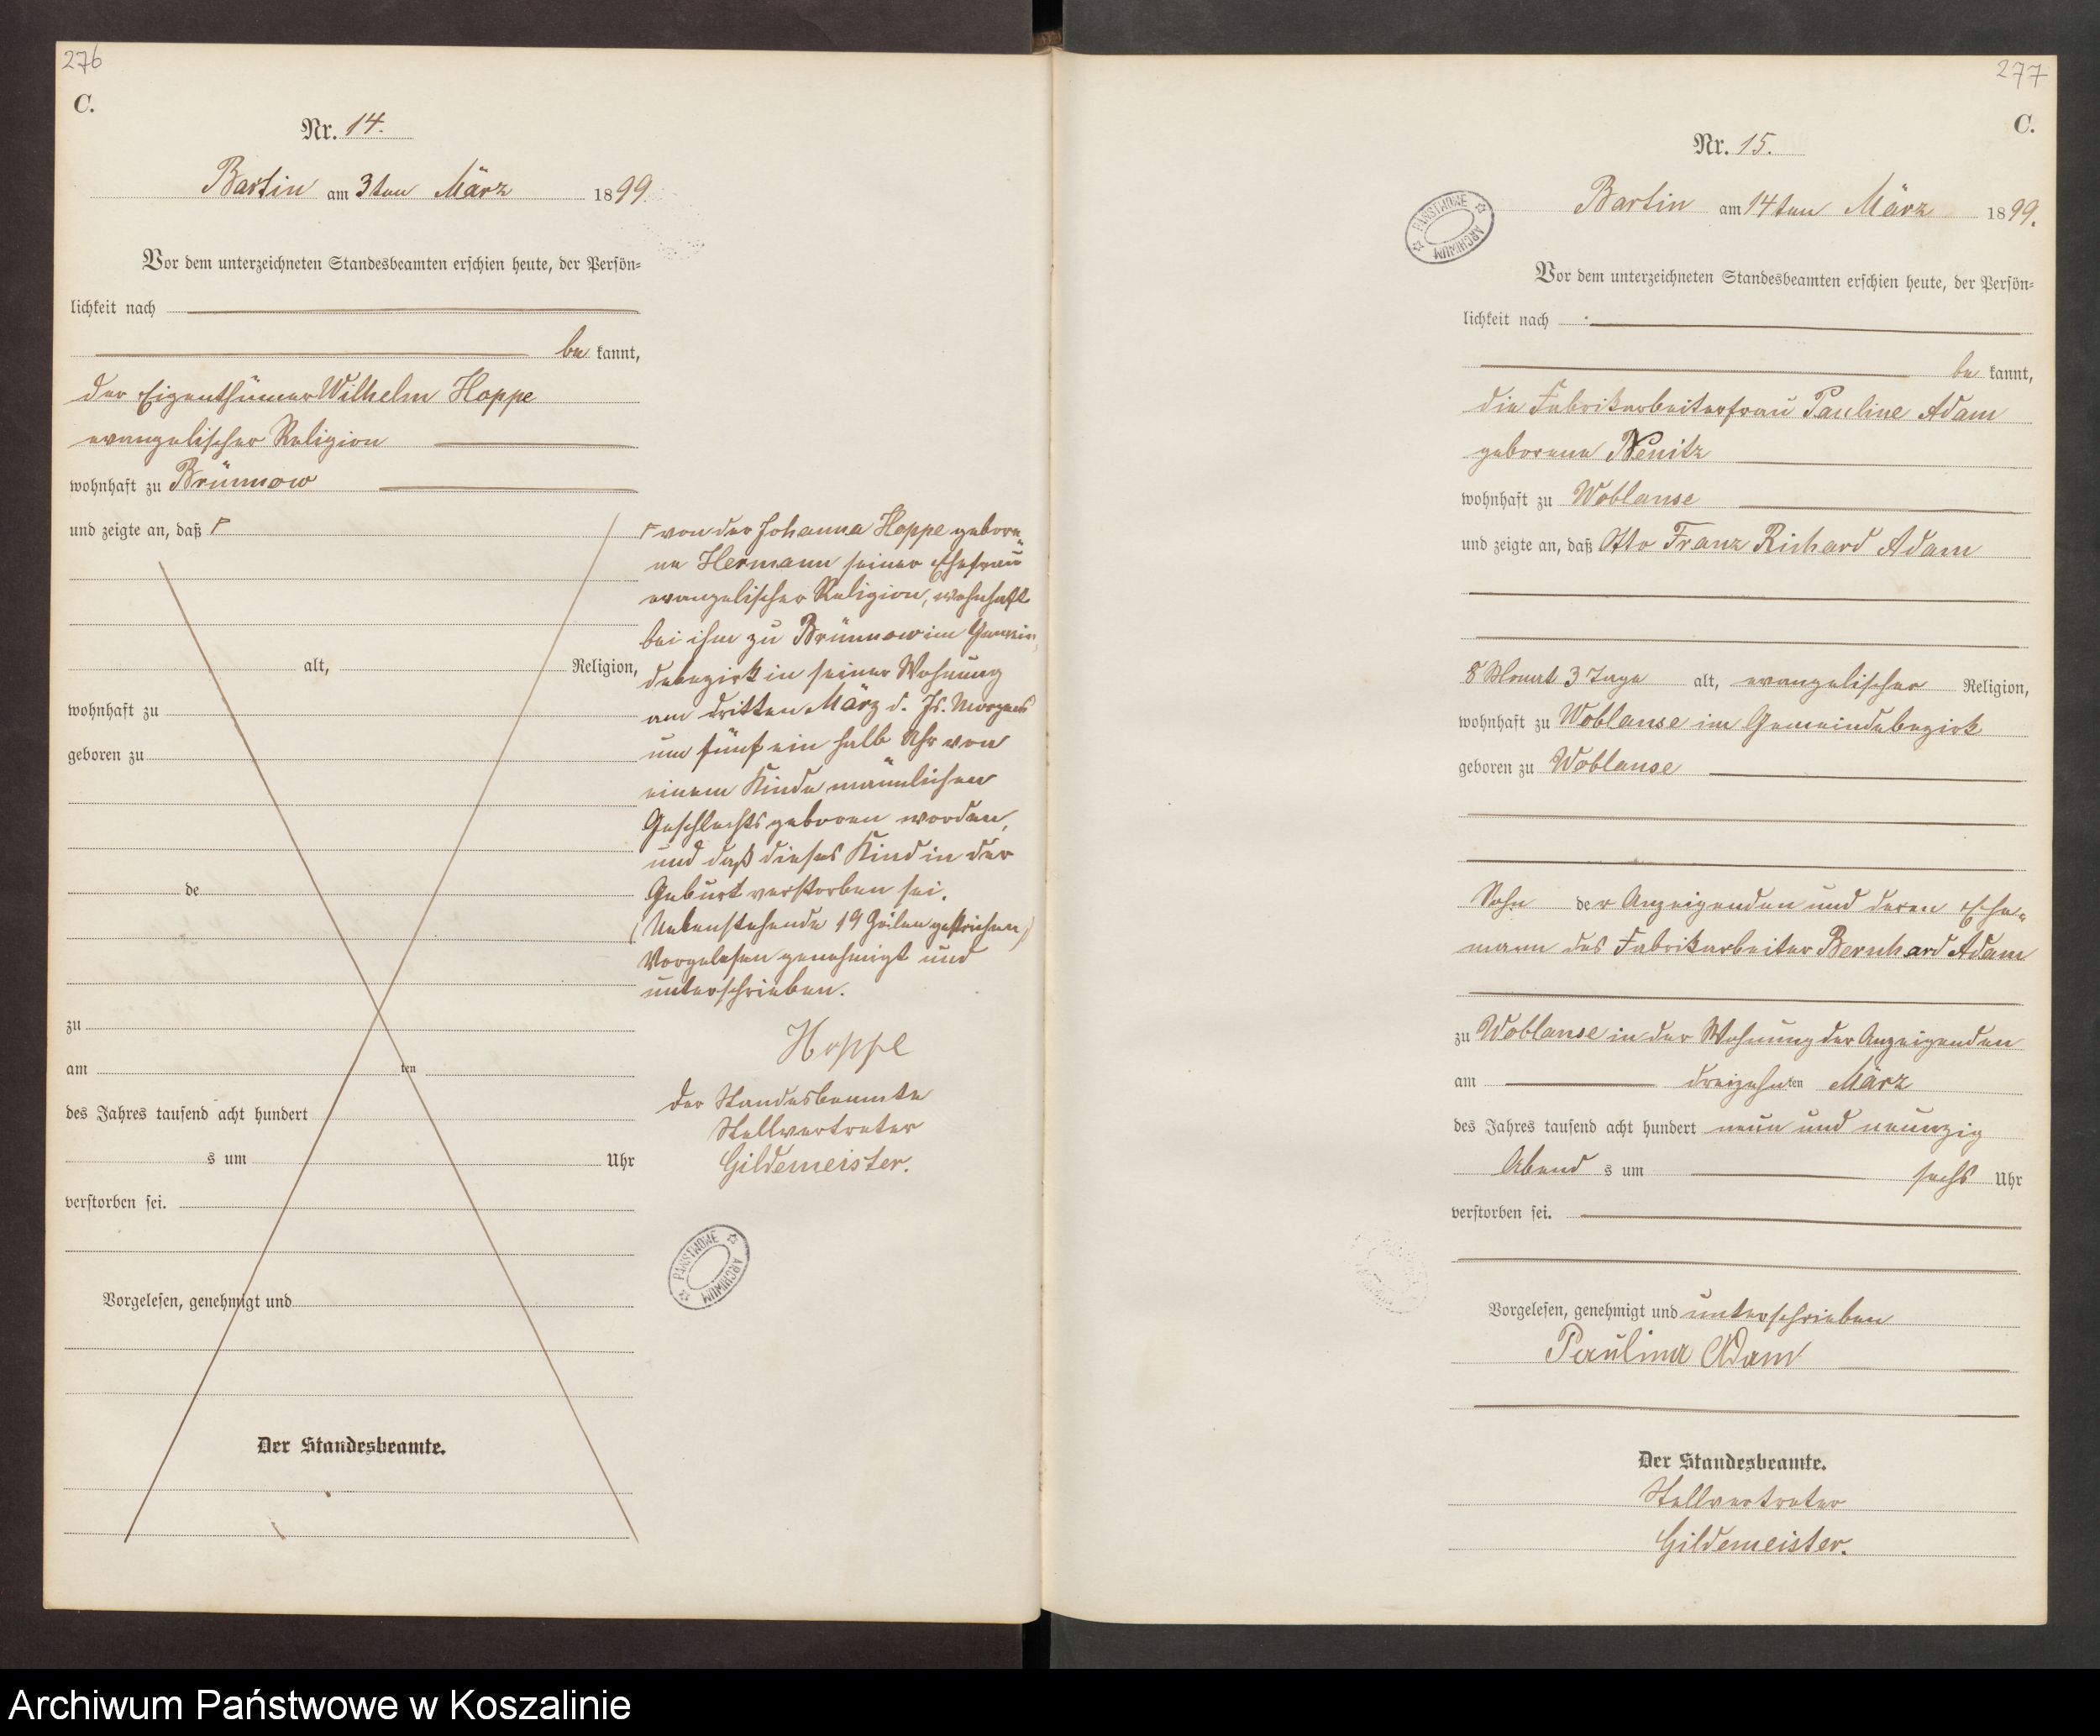 276
C.
Nr. 14.
Bartin am 3ten März 1899.
Vor dem unterzeichneten Standesbeamten erschien heute, der Persön-
lichkeit nach
be kannt,
der Eigenthümer Wilhelm Hoppe
evangelischer Religion
wohnhaft zu Brünnow
und zeigte an, daß Γ
alt, Religion,
wohnhaft zu
geboren zu
de
zu
am ten
des Jahres tausend acht hundert
s um Uhr
verstorben sei.
Vorgelesen, genehmigt und
Der Standesbeamte.
Γ von der Johanna Hoppe gebore-
ne Hermann seiner Ehefrau
evangelischer Religion, wohnhaft
bei ihm zu Brünnow im Gemein
debezirk in seiner Wohnung
am dritten März d. Js. Morgens
um fünf ein halb Uhr von
einem Kinde männlichen
Geschlechts geboren worden,
und daß dieses Kind in der
Geburt verstorben sei.
(Nebenstehende 19 Zeilen gestrichen)
Vorgelesen genehmigt und
unterschrieben.
Hoppe
Der Standesbeamte
Stellvertreter
Gildemeister.
PAŃSTWOWE ARCHIWUM
277
C.
Nr. 15.
PAŃSTWOWE ARCHIWUM
Bartin am 14ten März 1899.
Vor dem unterzeichneten Standesbeamten erschien heute, der Persön-
lichkeit nach
be kannt,
die Fabrikarbeiterfrau Pauline Adam
geborene Nenitz
wohnhaft zu Woblanse
und zeigte an, daß Otto Franz Richard Adam
8 Monat 3 Tage alt, evangelischer Religion,
wohnhaft zu Woblanse im Gemeindebezirk
geboren zu Woblanse
Sohn der Anzeigenden und deren Ehe-
mann des Fabrikarbeiter Bernhard Adam
zu Woblanse in der Wohnung der Anzeigenden
am dreizehnten März
des Jahres tausend acht hundert neun und neunzig
Abend s um sechs Uhr
verstorben sei.
Vorgelesen, genehmigt und unterschrieben
Pauline Adam
Der Standesbeamte.
Stellvertreter
Gildemeister.
Archiwum Państwowe w Koszalinie